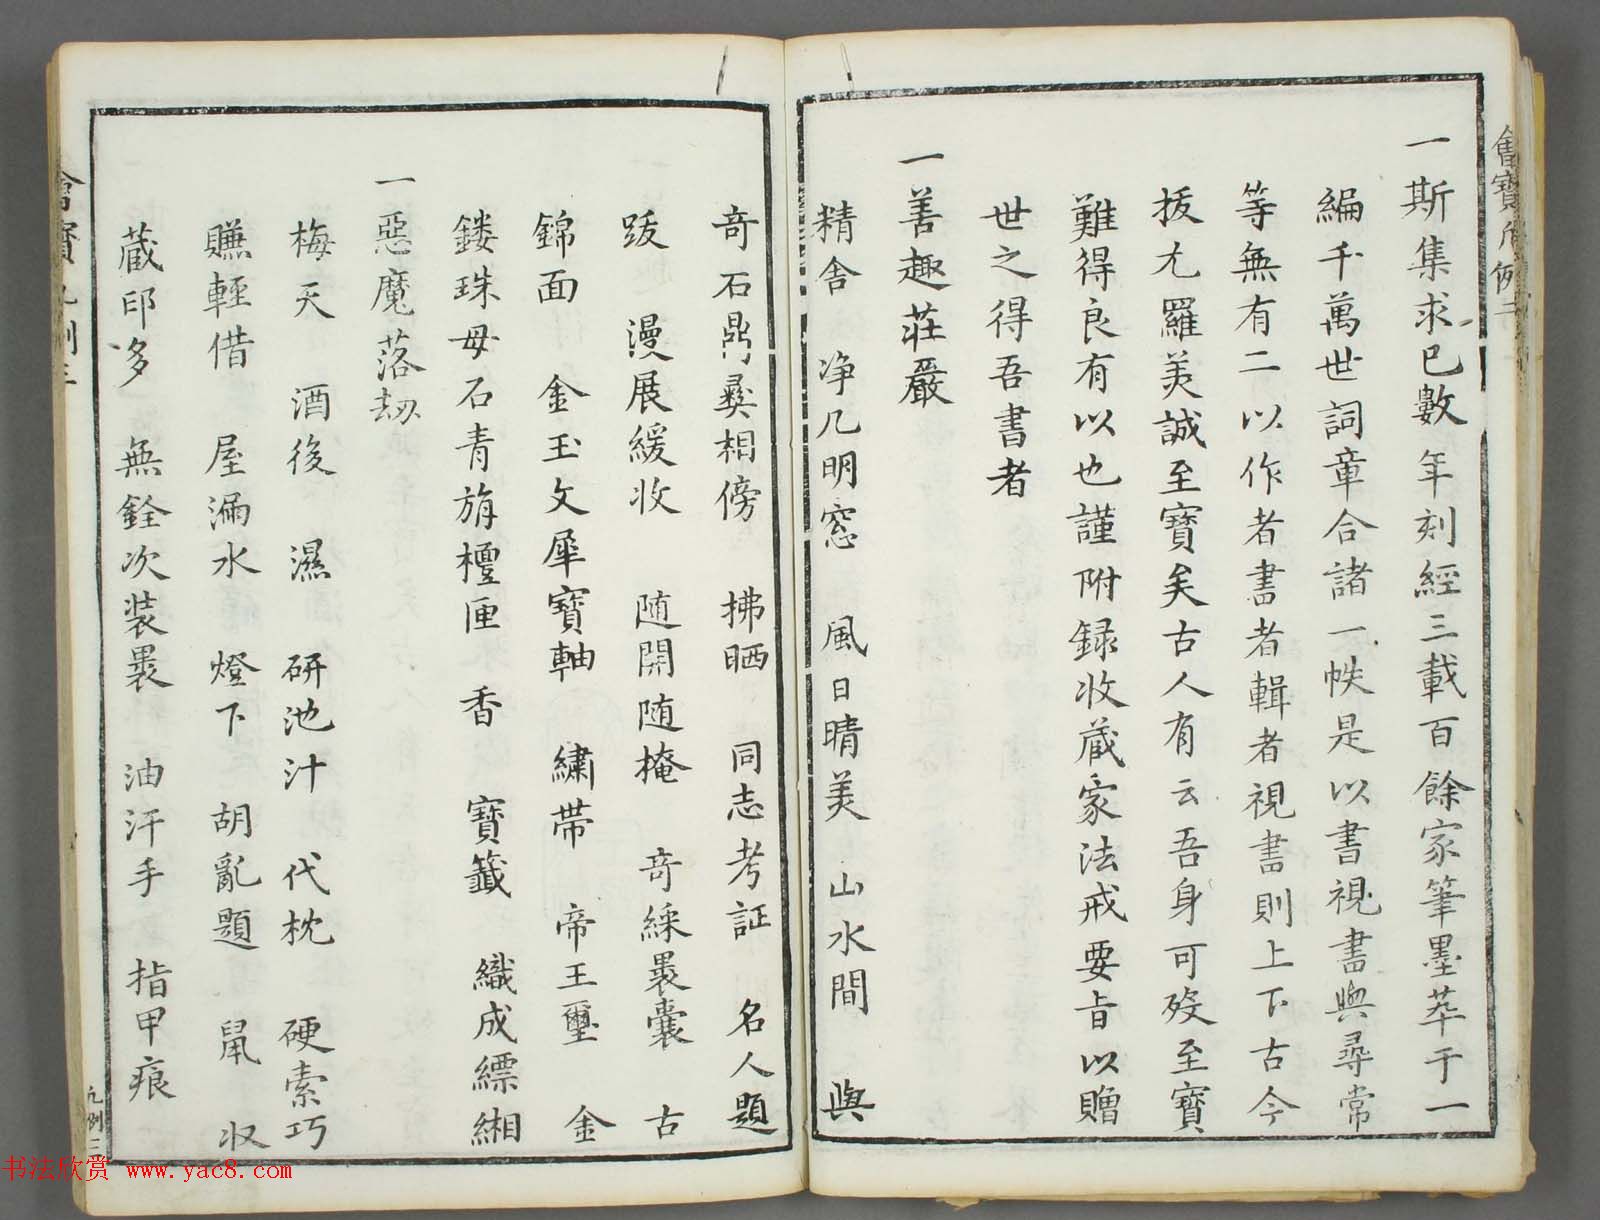 一斯集求已數年刻經三載百餘家筆墨萃于一
編千萬世詞章合諸一帙是以書視書與尋常
等無有二以作者書者輯者視書則上下古今
拔尤羅美誠至寶矣古人有云吾身可歿至寶
難得良有以也謹附録收蔵家法戒要旨以贈
世之得吾書者
一善趣莊嚴
精舎 浄几明窓 風日晴美 山水間 與
奇石鼎彝相傍 拂晒 同志考証 名人題
跋 漫展緩收 随開随掩 奇綵褁囊 古
錦面 金玉文犀寳軸 繡帯 帝王璽 金
鏤珠母石青旃檀匣 香 寶籤 織成縹緗
一惡魔落劫
梅天 酒後 濕 研池汁 代枕 硬索巧
賺輕借 屋漏水 燈下 胡亂題 鼠 收
蔵印多 無銓次装褁 油汗手 指甲痕
凡例三
书法欣赏 www.yac8.com